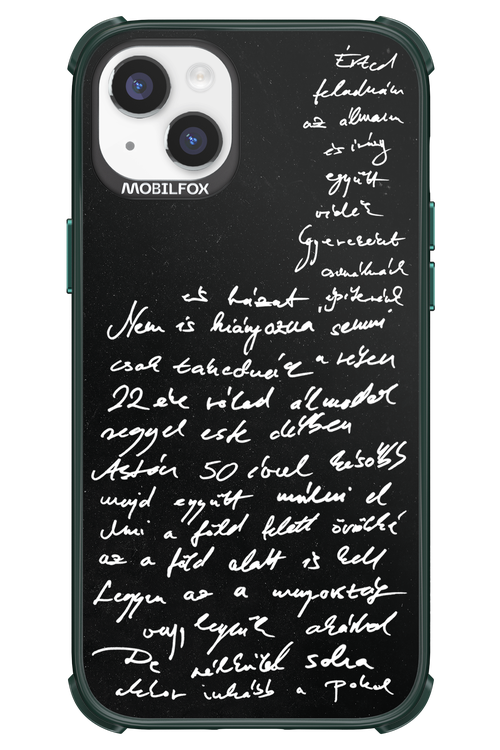 MOBILFOX
Érted
feladnám
az álmom
és irány
együtt
vidék
Gyerekeket
csinálnánk
és házat építenénk
Nem is hiányozna semmi
csak
22 éve rólad álmodok
reggel este délben
Aztán 50 évvel később
majd együtt múlni el
Ami a föld felett örökké
az a föld alatt is kell
Legyen az a mennyország
vagy legyünk akárhol
De nélküled soha
akkor inkább a pokol